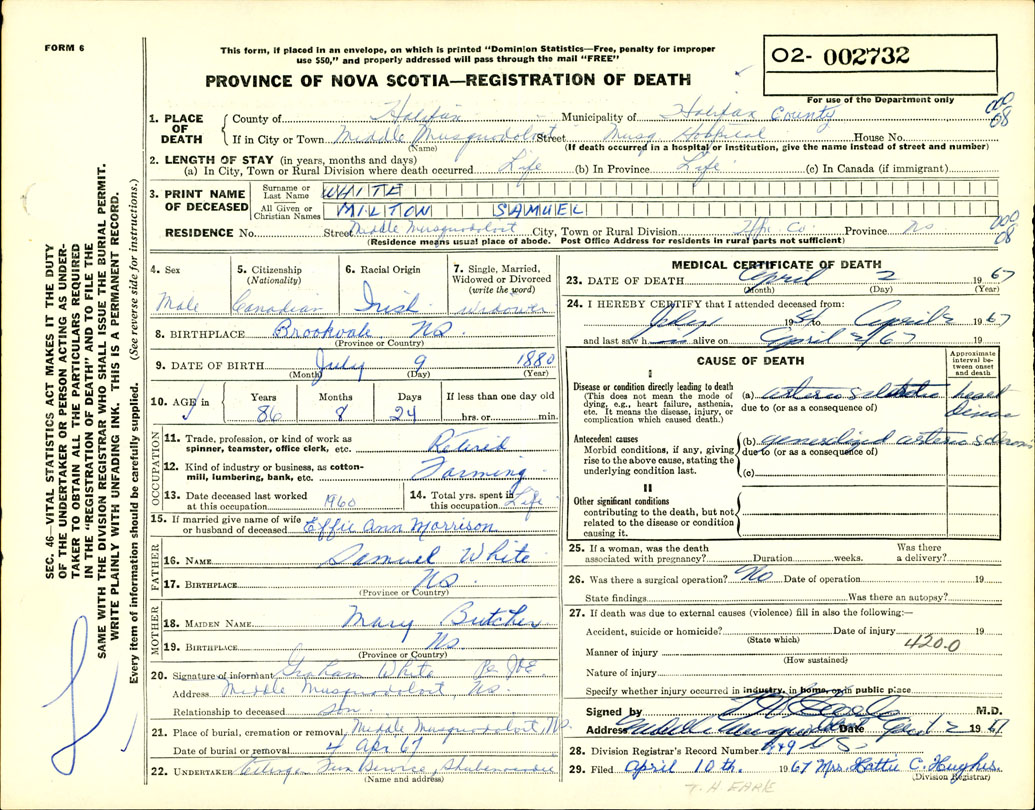 FORM 6
This form, if placed in an envelope, on which is printed "Dominion Statistics—Free, penalty for improper
use $50," and properly addressed will pass through the mail "FREE"
PROVINCE OF NOVA SCOTIA—REGISTRATION OF DEATH
02- 002732
For use of the Department only
000
08
1. PLACE OF DEATH
County of Halifax Municipality of Halifax County
If in City or Town Middle Musquodoboit Street Musq. Hospital House No.
(Name) (If death occurred in a hospital or institution, give the name instead of street and number)
2. LENGTH OF STAY (in years, months and days)
(a) In City, Town or Rural Division where death occurred Life (b) In Province Life (c) In Canada (if immigrant)
3. PRINT NAME OF DECEASED
Surname or Last Name WHITE
All Given or Christian Names MILTON SAMUEL
RESIDENCE No. Street Middle Musquodoboit City, Town or Rural Division Hfx Co. Province NS
(Residence means usual place of abode. Post Office Address for residents in rural parts not sufficient)
000
08
4. Sex
Male
5. Citizenship
(Nationality)
Canadian
6. Racial Origin
Irish
7. Single, Married,
Widowed or Divorced
(write the word)
Widower
8. BIRTHPLACE Brookvale NS.
(Province or Country)
9. DATE OF BIRTH July 9 1880
(Month) (Day) (Year)
10. AGE in
Years Months Days If less than one day old
86 8 24 hrs. or min.
OCCUPATION
11. Trade, profession, or kind of work as
spinner, teamster, office clerk, etc. Retired
12. Kind of industry or business, as cotton-
mill, lumbering, bank, etc. Farming
13. Date deceased last worked
at this occupation 1960
14. Total yrs. spent in
this occupation Life
15. If married give name of wife
or husband of deceased Effie Ann Morrison
FATHER
16. NAME Samuel White
17. BIRTHPLACE NS.
(Province or Country)
MOTHER
18. MAIDEN NAME Mary Butcher
19. BIRTHPLACE NS.
(Province or Country)
20. Signature of informant Graham White
Address Middle Musquodoboit NS.
Relationship to deceased son.
21. Place of burial, cremation or removal Middle Musquodoboit, NS.
Date of burial or removal 4 Apr 67
22. UNDERTAKER Shubenacadie
(Name and address)
MEDICAL CERTIFICATE OF DEATH
23. DATE OF DEATH April 2 1967
(Month) (Day) (Year)
24. I HEREBY CERTIFY that I attended deceased from:
19 to April 2 1967
and last saw h alive on April 2/67 19
CAUSE OF DEATH
Approximate interval between onset and death
I
Disease or condition directly leading to death
(This does not mean the mode of dying, e.g., heart failure, asthenia, etc. It means the disease, injury, or complication which caused death.)
(a) arteriosclerotic heart disease
due to (or as a consequence of)
Antecedent causes
Morbid conditions, if any, giving rise to the above cause, stating the underlying condition last.
(b) generalized arteriosclerosis
due to (or as a consequence of)
(c)
II
Other significant conditions
contributing to the death, but not related to the disease or condition causing it.
25. If a woman, was the death
associated with pregnancy? Duration weeks. Was there
a delivery?
26. Was there a surgical operation? No Date of operation 19
State findings Was there an autopsy?
27. If death was due to external causes (violence) fill in also the following:—
Accident, suicide or homicide? Date of injury 19
(State which)
4200
Manner of injury
(How sustained)
Nature of injury
Specify whether injury occurred in industry, in home, or in public place
Signed by M.D.
Address Middle Musquodoboit Date 1967
28. Division Registrar's Record Number
29. Filed April 10th. 1967 Mrs. Hattie C. Hughes.
(Division Registrar)
T. H EARLE
SEC. 46—VITAL STATISTICS ACT MAKES IT THE DUTY
OF THE UNDERTAKER OR PERSON ACTING AS UNDER-
TAKER TO OBTAIN ALL THE PARTICULARS REQUIRED
IN THE "REGISTRATION OF DEATH" AND TO FILE THE
SAME WITH THE DIVISION REGISTRAR WHO SHALL ISSUE THE BURIAL PERMIT.
WRITE PLAINLY WITH UNFADING INK. THIS IS A PERMANENT RECORD.
Every item of information should be carefully supplied. (See reverse side for instructions.)